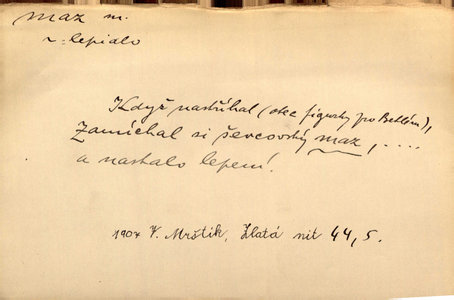 maz m.
= lepidlo
Když nastříhal (otec figurky pro Betlém),
zamíchal si ševcovský maz, ....
a nastalo lepení.
1907 V. Mrštík, Zlatá nit 44, 5.